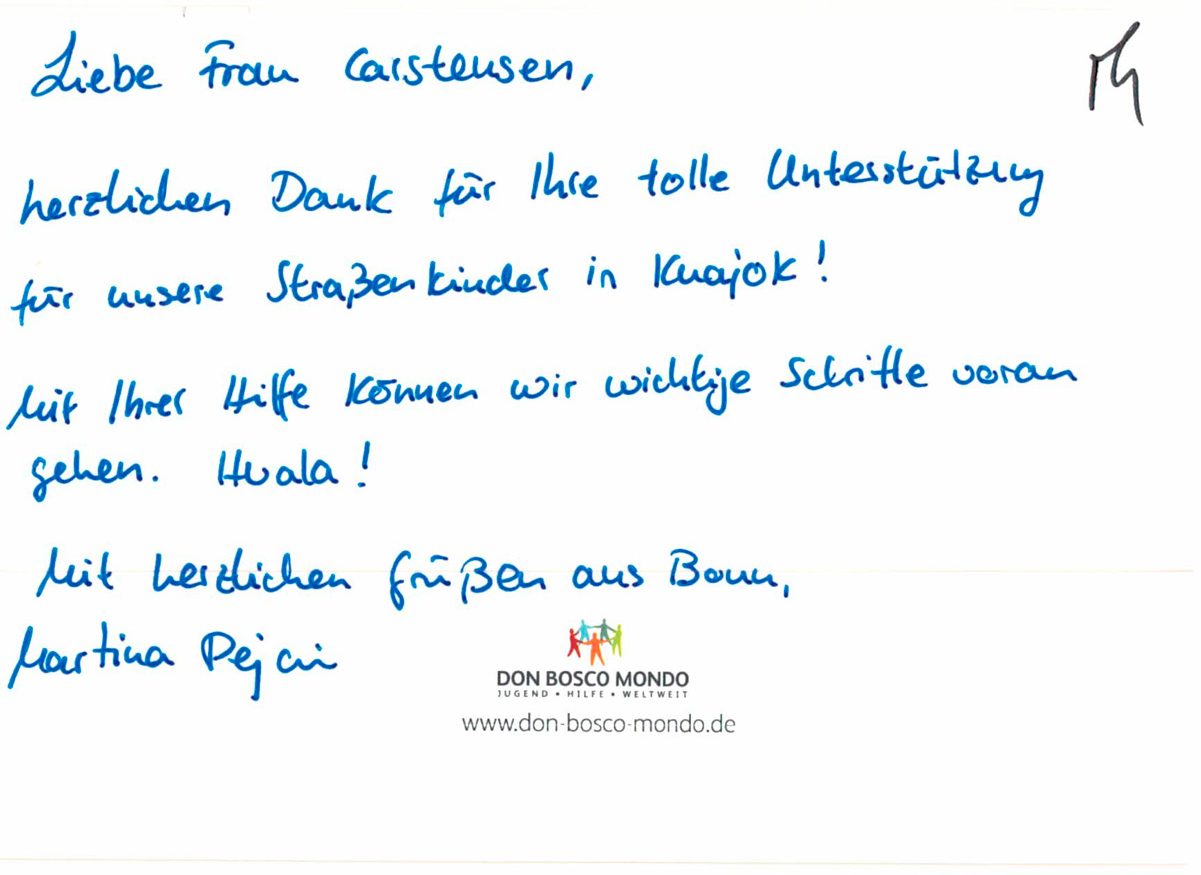 Liebe Frau Carstensen,
herzlichen Dank für Ihre tolle Unterstützung
für unsere Straßenkinder in Kuajok!
Mit Ihrer Hilfe können wir wichtige Schritte voran
gehen. Huala!
Mit herzlichen Grüßen aus Bonn,
Martina Pejcic
DON BOSCO MONDO
JUGEND • HILFE • WELTWEIT
www.don-bosco-mondo.de